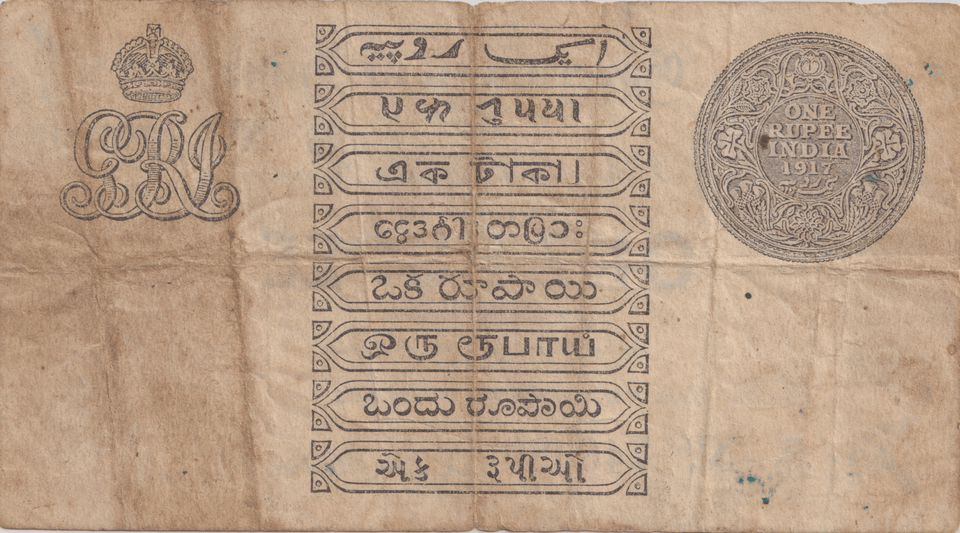 GRI
ایک روپیہ
𑂉𑂍 𑂩𑂳𑂣𑂨𑂰
এক টাকা।
ఒక రూపాయి
ஒரு ரூபாய்
ಒಂದು ರೂಪಾಯಿ
એક રૂપીઓ
ONE
RUPEE
INDIA
1917